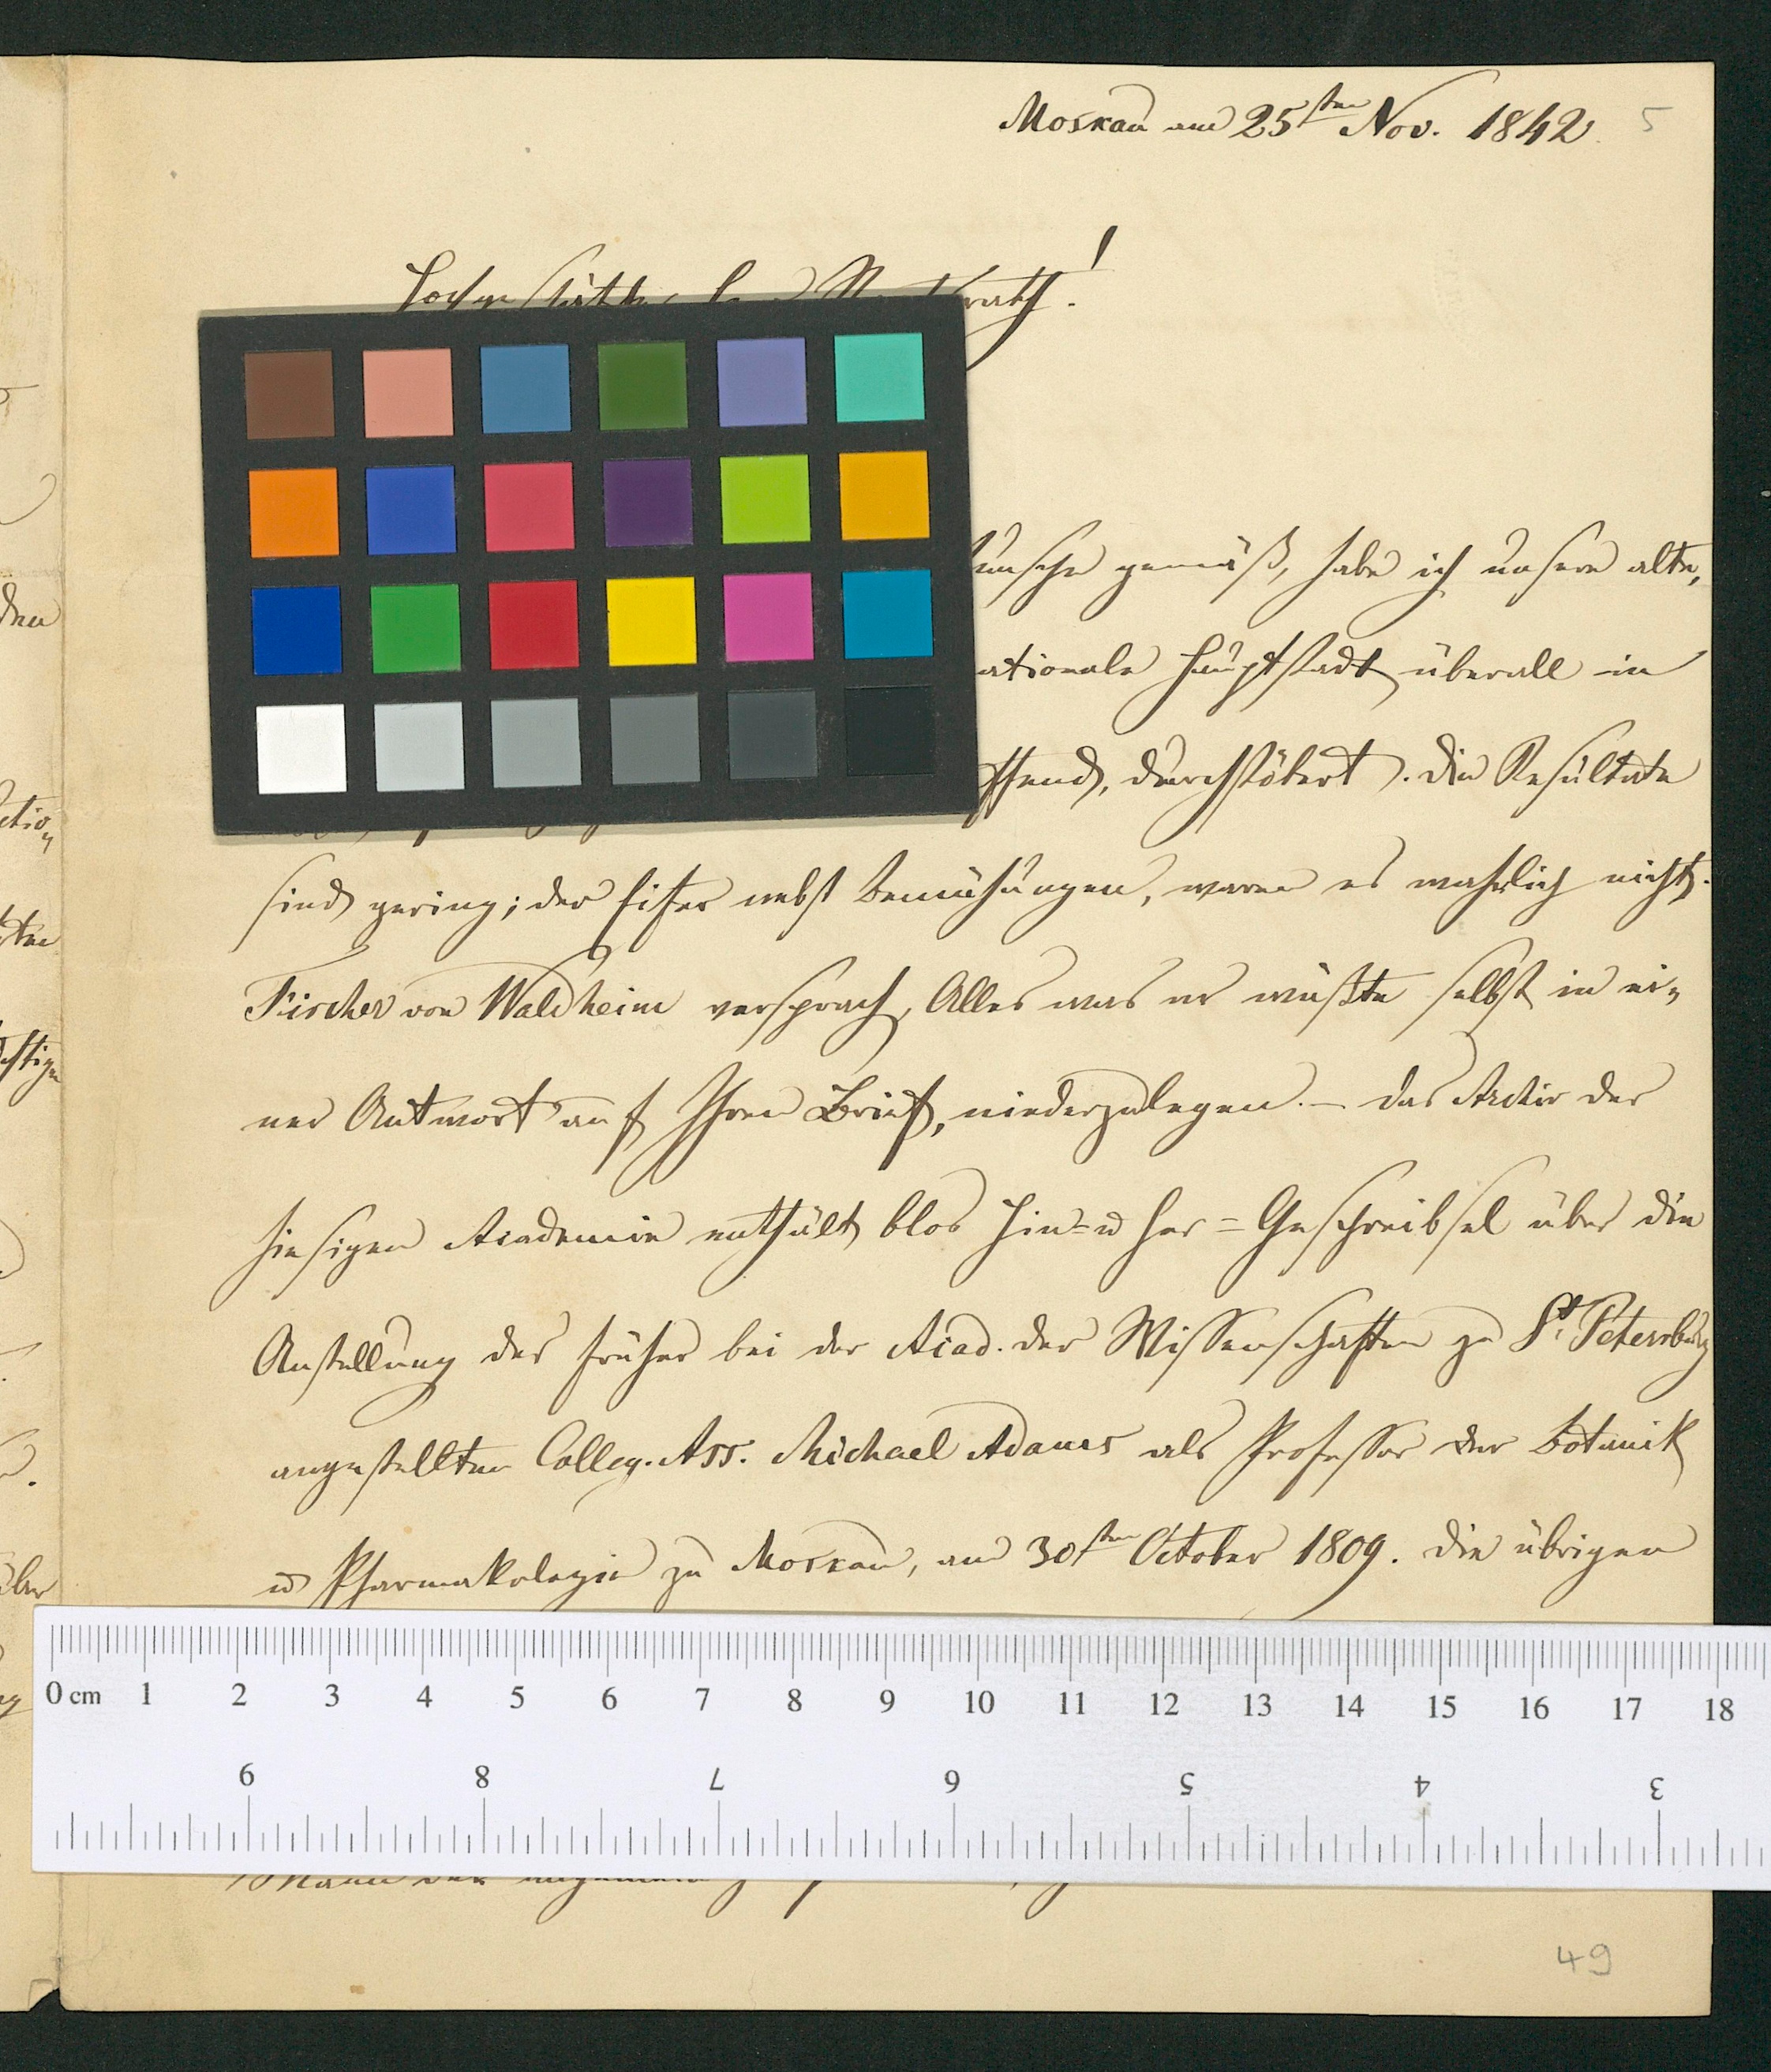 Moskau am 25sten Nov. 1842. 5
gemäß, habe ich unsere alte,
ationale Hauptstadt überall in
durchstöbert. Die Resultate
sind gering; der Eifer nebst Bemühungen, waren es wahrlich nicht.
Fischer von Waldheim versprach, Alles was er wüßte selbst in ei-
ner Antwort auf Ihren Brief, niederzulegen. – Das Archiv der
hiesigen Academie enthält blos Hin- u Her-Geschreibsel über die
Anstellung des früher bei der Acad. der Wissenschaften zu St. Petersburg
angestellten Colleg. Ass. Michael Adams als Professor der Botanik
u Pharmakologie zu Moskau, am 30sten October 1809. Die übrigen
0 cm 1 2 3 4 5 6 7 8 9 10 11 12 13 14 15 16 17 18
9 8 7 6 5 4 3
49